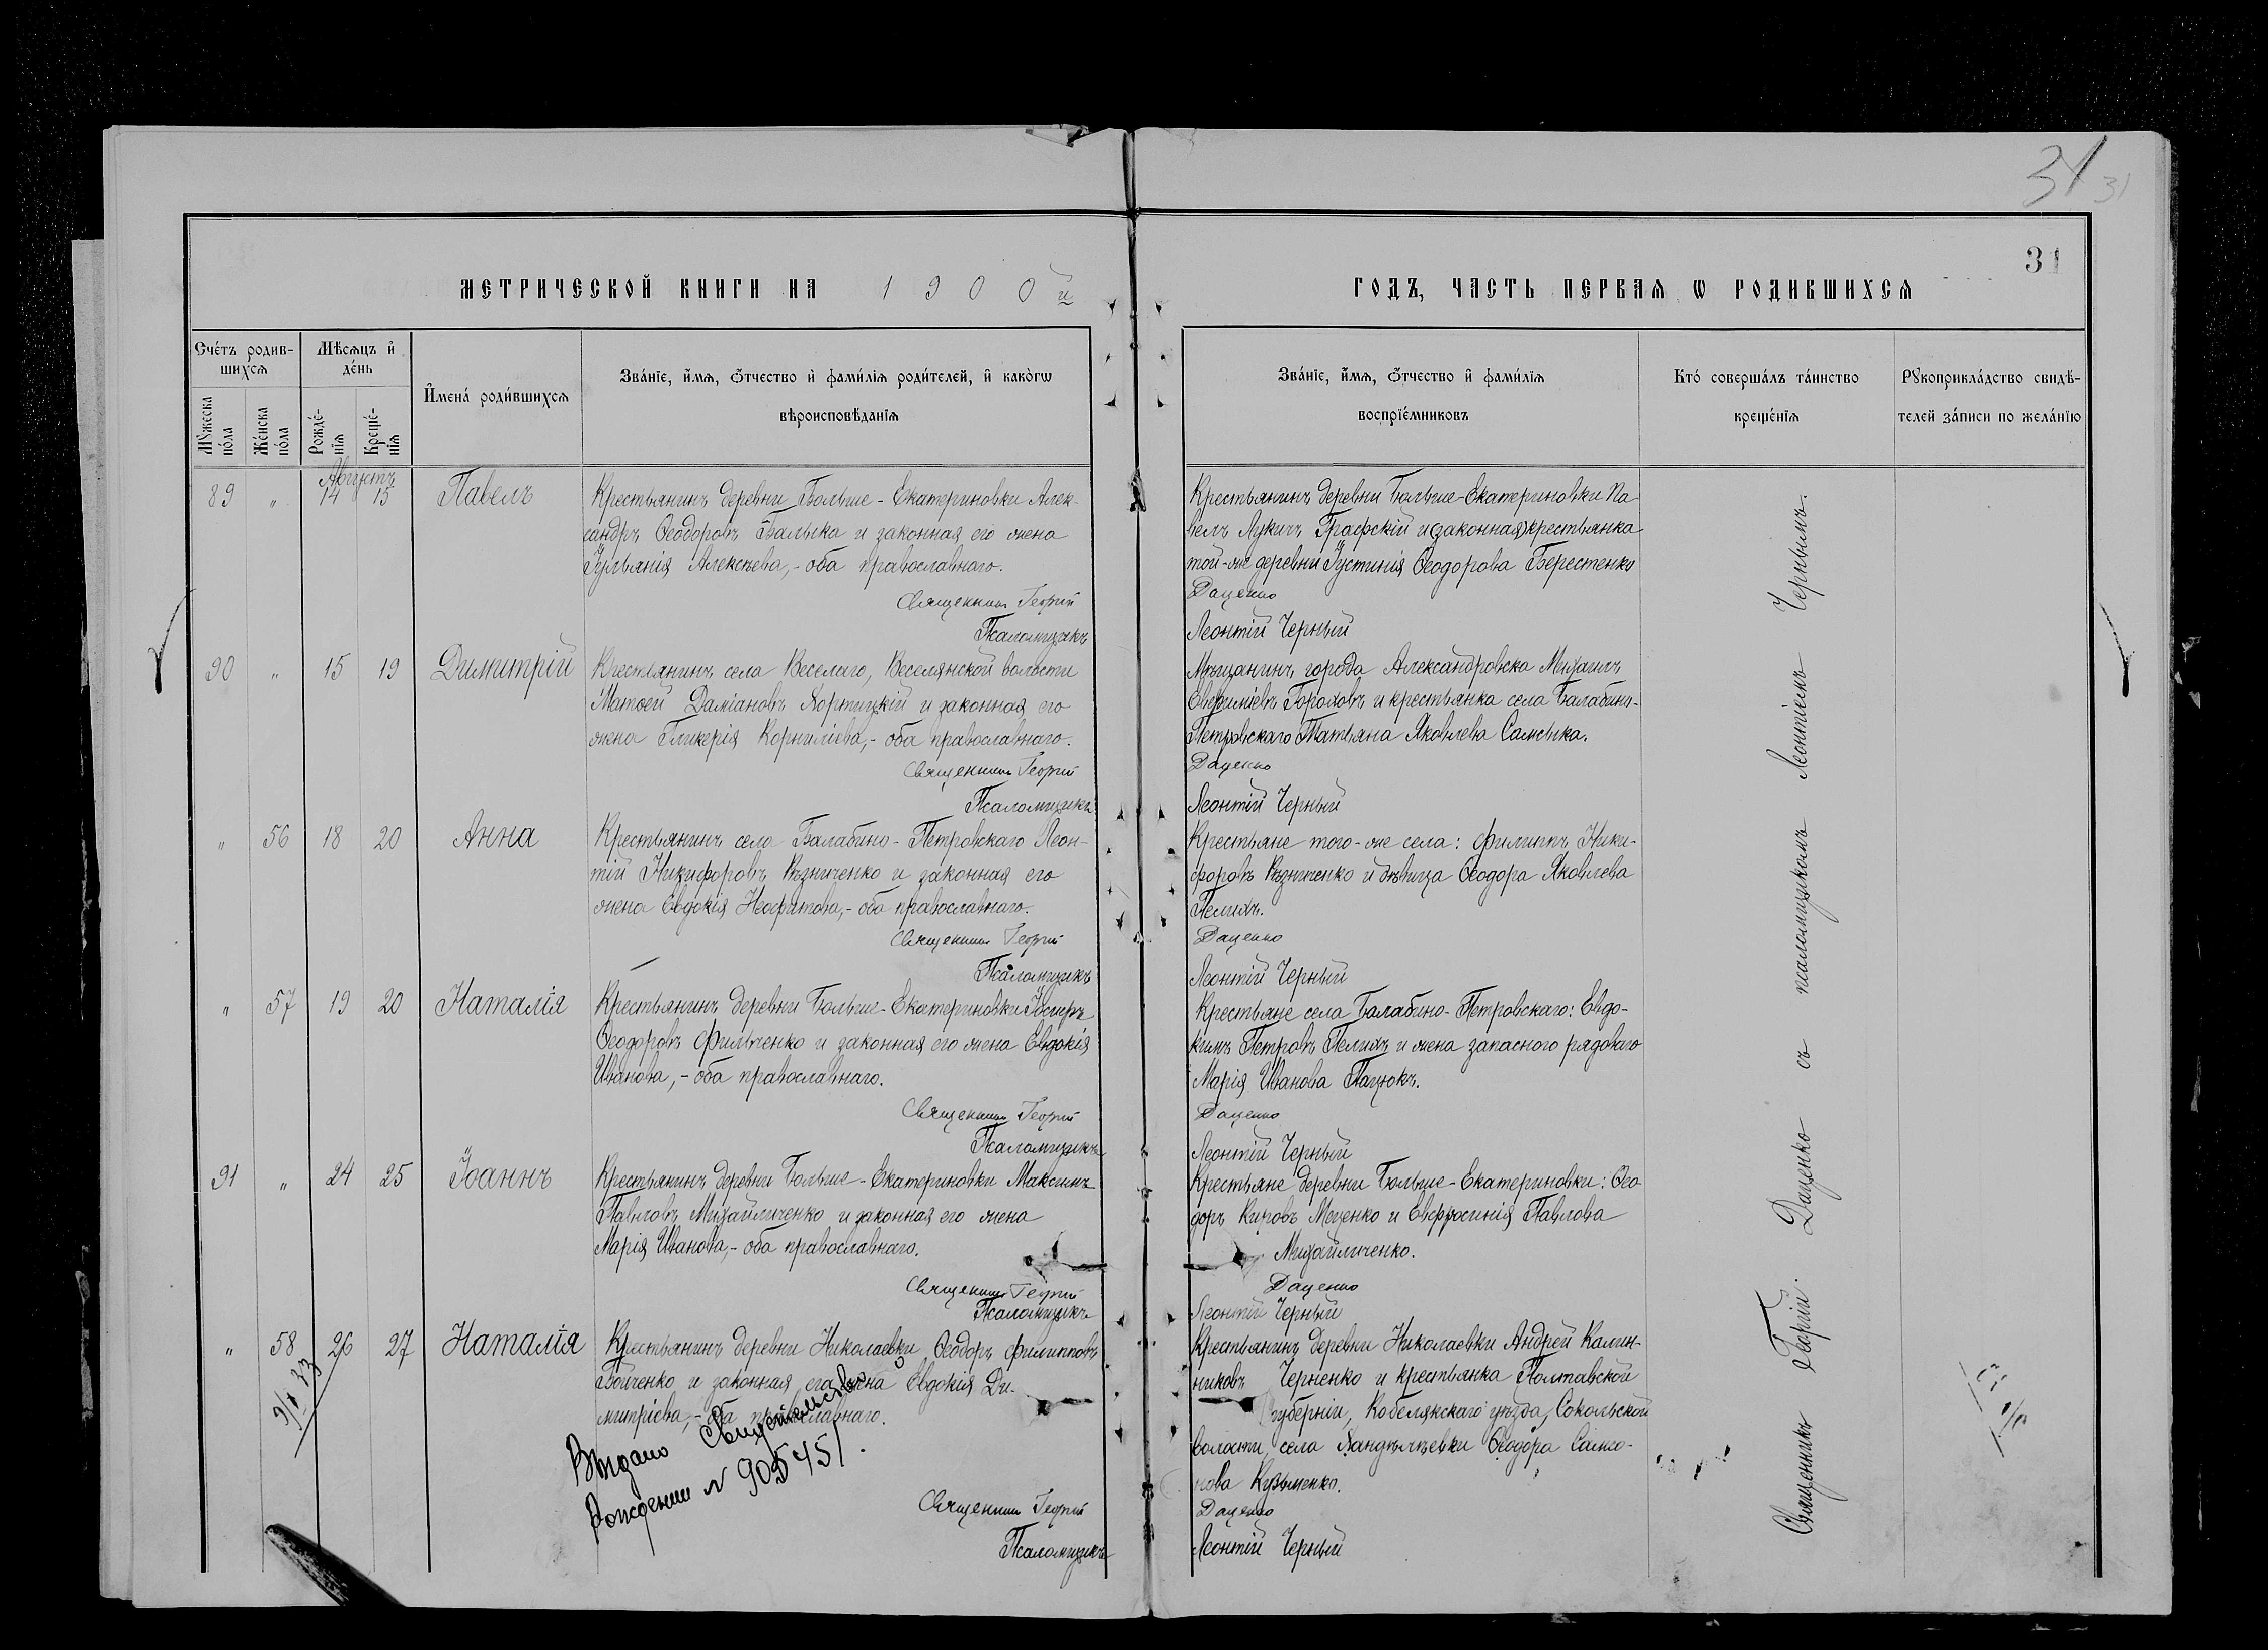 31 31
31
МЕТРИЧЕСКОЙ КНИГИ НА 1900й
ГОДЪ, ЧАСТЬ ПЕРВАѦ Ѡ РОДИВШИХСѦ
Счéтъ родив-
шихсѧ
Мѣсѧцъ и҆
дéнь
Мꙋжеска
пóла
Жéнска
пóла
Рождé-
нїѧ
Крещé-
нїѧ
И҆менá роди́вшихсѧ
Звáнїе, и҆́мѧ, ѻ҆́тчество и҆ фами́лїѧ роди́телей, и҆ какóгѡ
вѣроисповѣ́данїѧ
Звáнїе, и҆́мѧ, ѻ҆́тчество и҆ фами́лїѧ
воспрїéмниковъ
Ктó совершáлъ тáинство
крещéнїѧ
Рꙋкоприклáдство свидѣ́-
телей зáписи по желáнїю
Августъ
89 " 14 15 Павелъ
Крестьянинъ деревни Больше-Екатериновки Алек-
сандръ Ѳеодоровъ Балыка и законная его жена
Іульянія Алексѣева,- оба православнаго.
Священникъ Георгій
Псаломщикъ
Крестьянинъ деревни Больше-Екатериновки Па-
велъ Лукичъ Графскій и (законная) крестьянка
той-же деревни Іустинія Ѳеодорова Берестенко
Даценко
Леонтій Черный
90 " 15 19 Димитрій
Крестьянинъ села Веселаго, Веселянской волости
Матѳей Даміановъ Хортицкій и законная его
жена Гликерія Корниліева,- оба православнаго.
Священникъ Георгій
Псаломщикъ
Мѣщанинъ города Александровска Михаилъ
Евфиміевъ Гороховъ и крестьянка села Балабино-
Петровскаго Татьяна Яковлева Самсыка.
Даценко
Леонтій Черный
" 56 18 20 Анна
Крестьянинъ села Балабино-Петровскаго Леон-
тій Никифоровъ Рѣзниченко и законная его
жена Евдокія Неофитова,- оба православнаго.
Священникъ Георгій
Псаломщикъ
Крестьяне того-же села: Филиппъ Ники-
форовъ Рѣзниченко и дѣвица Ѳеодора Яковлева
Пелихъ.
Даценко
Леонтій Черный
" 57 19 20 Наталія
Крестьянинъ деревни Больше-Екатериновки Іосифъ
Ѳеодоровъ Фильченко и законная его жена Евдокія
Иванова,- оба православнаго.
Священникъ Георгій
Псаломщикъ
Крестьяне села Балабино-Петровскаго: Евдо-
кимъ Петровъ Пелихъ и жена запасного рядоваго
Марія Иванова Пацюкъ.
Даценко
Леонтій Черный
91 " 24 25 Іоаннъ
Крестьянинъ деревни Больше-Екатериновки Максимъ
Павловъ Михайличенко и законная его жена
Марія Иванова,- оба православнаго.
Священникъ Георгій
Псаломщикъ
Крестьяне деревни Больше-Екатериновки: Ѳео-
доръ Кировъ Моценко и Евфросинія Павлова
Михайличенко.
Даценко
Леонтій Черный
" 58 26 27 Наталія
Крестьянинъ деревни Николаевки Ѳеодоръ Филипповъ
Бойченко и законная его жена Евдокія Ди-
митріева,- оба православнаго.
Выдано свидетельство о
рождении N 905451.
Священникъ Георгій
Псаломщикъ
Крестьянинъ деревни Николаевки Андрей Калин-
никовъ Черненко и крестьянка Полтавской
губерніи, Кобелякскаго уѣзда, Сокольской
волости, села Ѳеодора Самсо-
нова Кузьменко.
Даценко
Леонтій Черный
Священникъ Георгій Даценко съ псаломщикомъ Леонтіемъ Чернымъ.